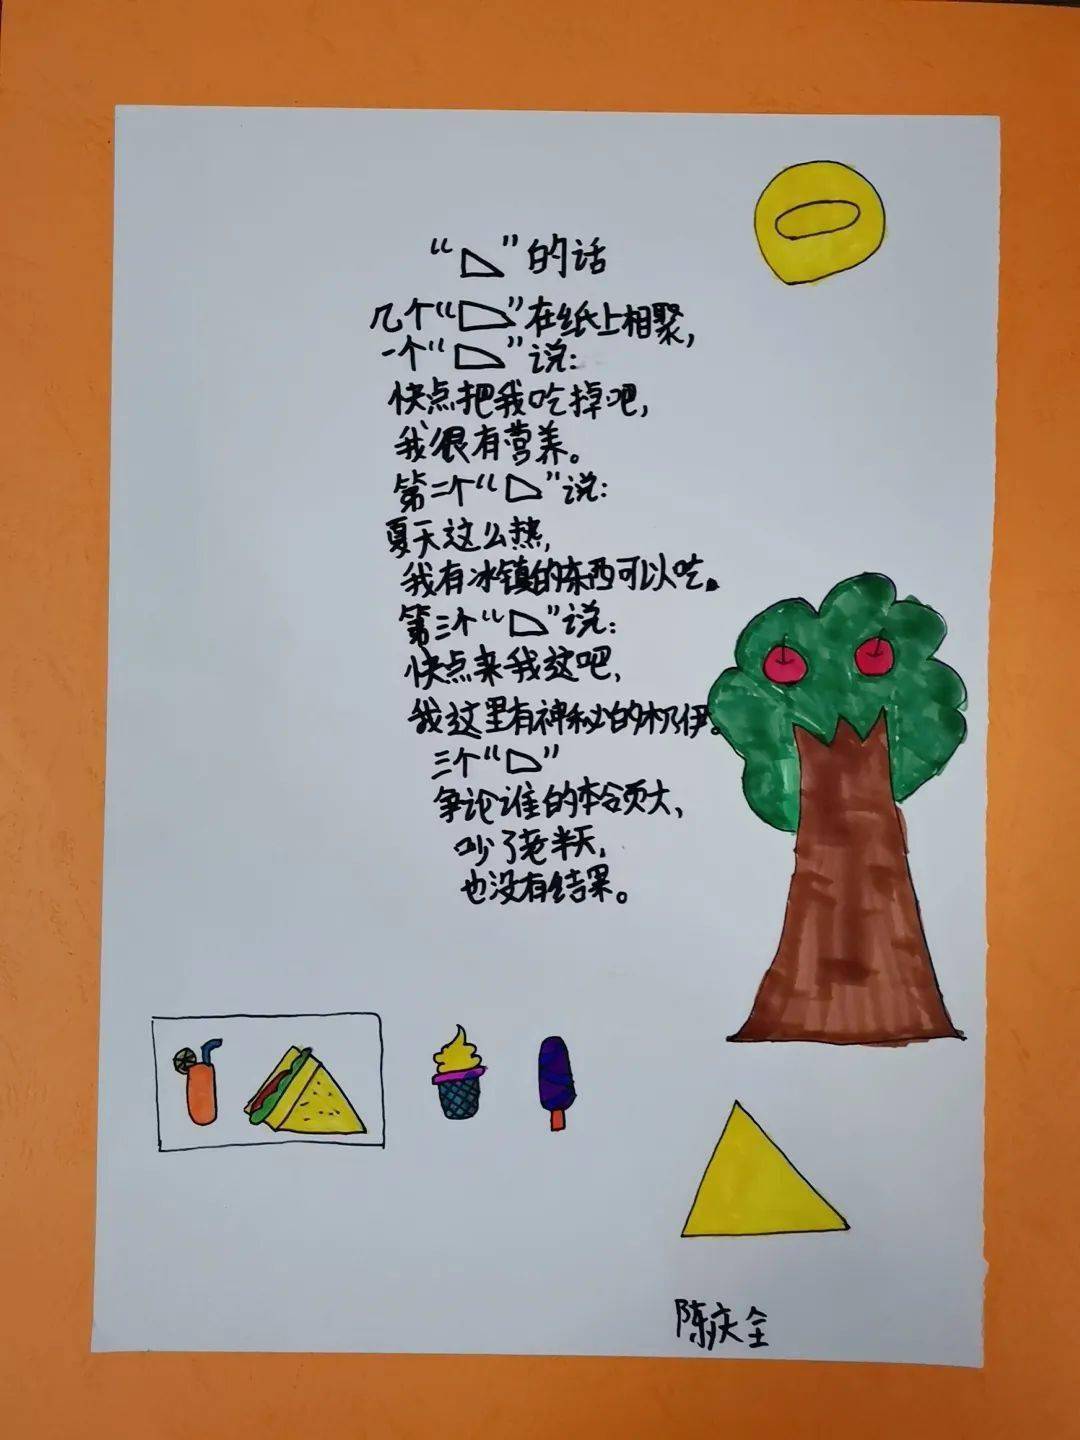 “◺”的话
几个“◺”在纸上相聚，
一个“◺”说：
快点把我吃掉吧，
我很有营养。
第二个“◺”说：
夏天这么热，
我有冰镇的东西可以吃。
第三个“◺”说：
快点来我这吧，
我这里有神秘的木乃伊。
三个“◺”
争论谁的本领大，
吵了老半天，
也没有结果。
陈庆全